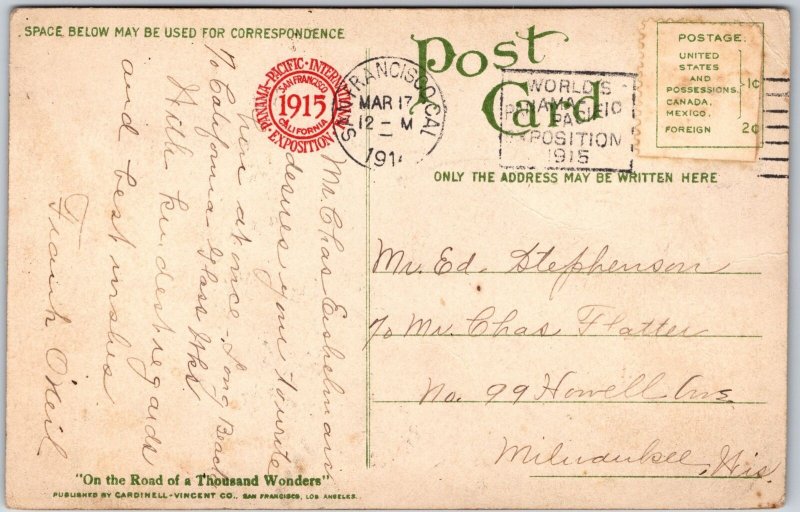 SPACE BELOW MAY BE USED FOR CORRESPONDENCE
Post
Card
PANAMA-PACIFIC-INTERNATIONAL EXPOSITION
SAN FRANCISCO
1915
CALIFORNIA
SAN FRANCISCO, CAL.
MAR 17
12-M
191
WORLD'S
PANAMA PACIFIC
EXPOSITION
1915
POSTAGE
UNITED
STATES
AND
POSSESSIONS,
CANADA,
MEXICO.
1¢
FOREIGN 2¢
ONLY THE ADDRESS MAY BE WRITTEN HERE
Mr. Chas. Eishelman
desires you to write
him at once - Long Beach
% California Glass Wks.
With kindest regards
and best wishes
Frank O'Neil
Mr. Ed. Stephenson
% Mr. Chas Flatter
No. 99 Howell Ave.
Milwaukee, Wis.
"On the Road of a Thousand Wonders"
PUBLISHED BY CARDINELL-VINCENT CO., SAN FRANCISCO, LOS ANGELES.